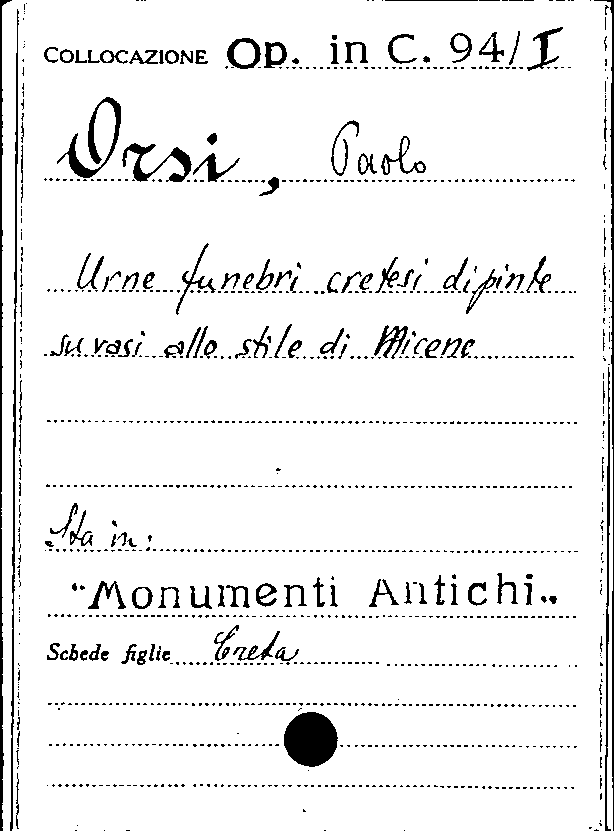 COLLOCAZIONE Op. in C. 94/I
Orsi, Paolo
Urne funebri cretesi dipinte
su vasi allo stile di Micene
Sta in:
"Monumenti Antichi„
Schede figlie Creta